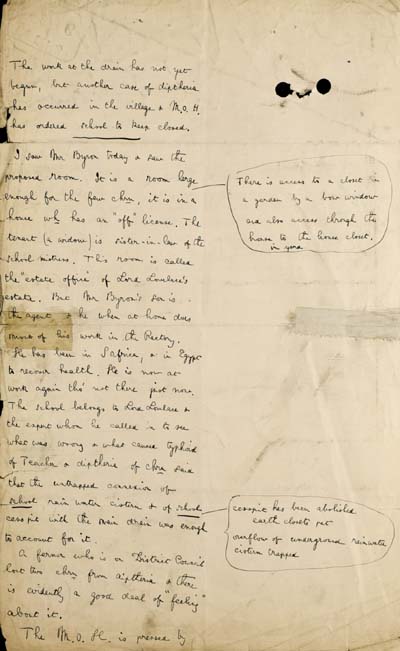 The work at the drain has not yet
begun, but another case of diptheria
has occurred in the village & M.O.H.
has ordered school to keep closed.
I saw Mr Byron today & saw the
proposed room. It is a room large
enough for the few chn, it is in a
house wh has an "off" license. The
tenant (a widow) is sister-in-law of the
school mistress. This room is called
the "estate office" of Lord Lovelace's
estate. But Mr Byron's son is
the agent & he when at home does
most of his work in the Rectory.
He has been in S Africa, & in Egypt
to recover health. He is now at
work again tho' not there just now.
The school belongs to Lord Lovelace &
the expert whom he called in to see
what was wrong & what caused typhoid
of Teacher & diptheria of chn said
that the untrapped connexion of
school rain water cistern & of school
cesspit with the main drain was enough
to account for it.
A farmer who is on District Council
lost two chn from diptheria & there
is evidently a good deal of "feeling"
about it.
The M.O.H. is pressed by
There is access to a closet in
a garden by a bow window
and also access through the
house to the house closet.
in yard
cesspit has been abolished
earth closets put
overflow of underground rainwater
cistern trapped